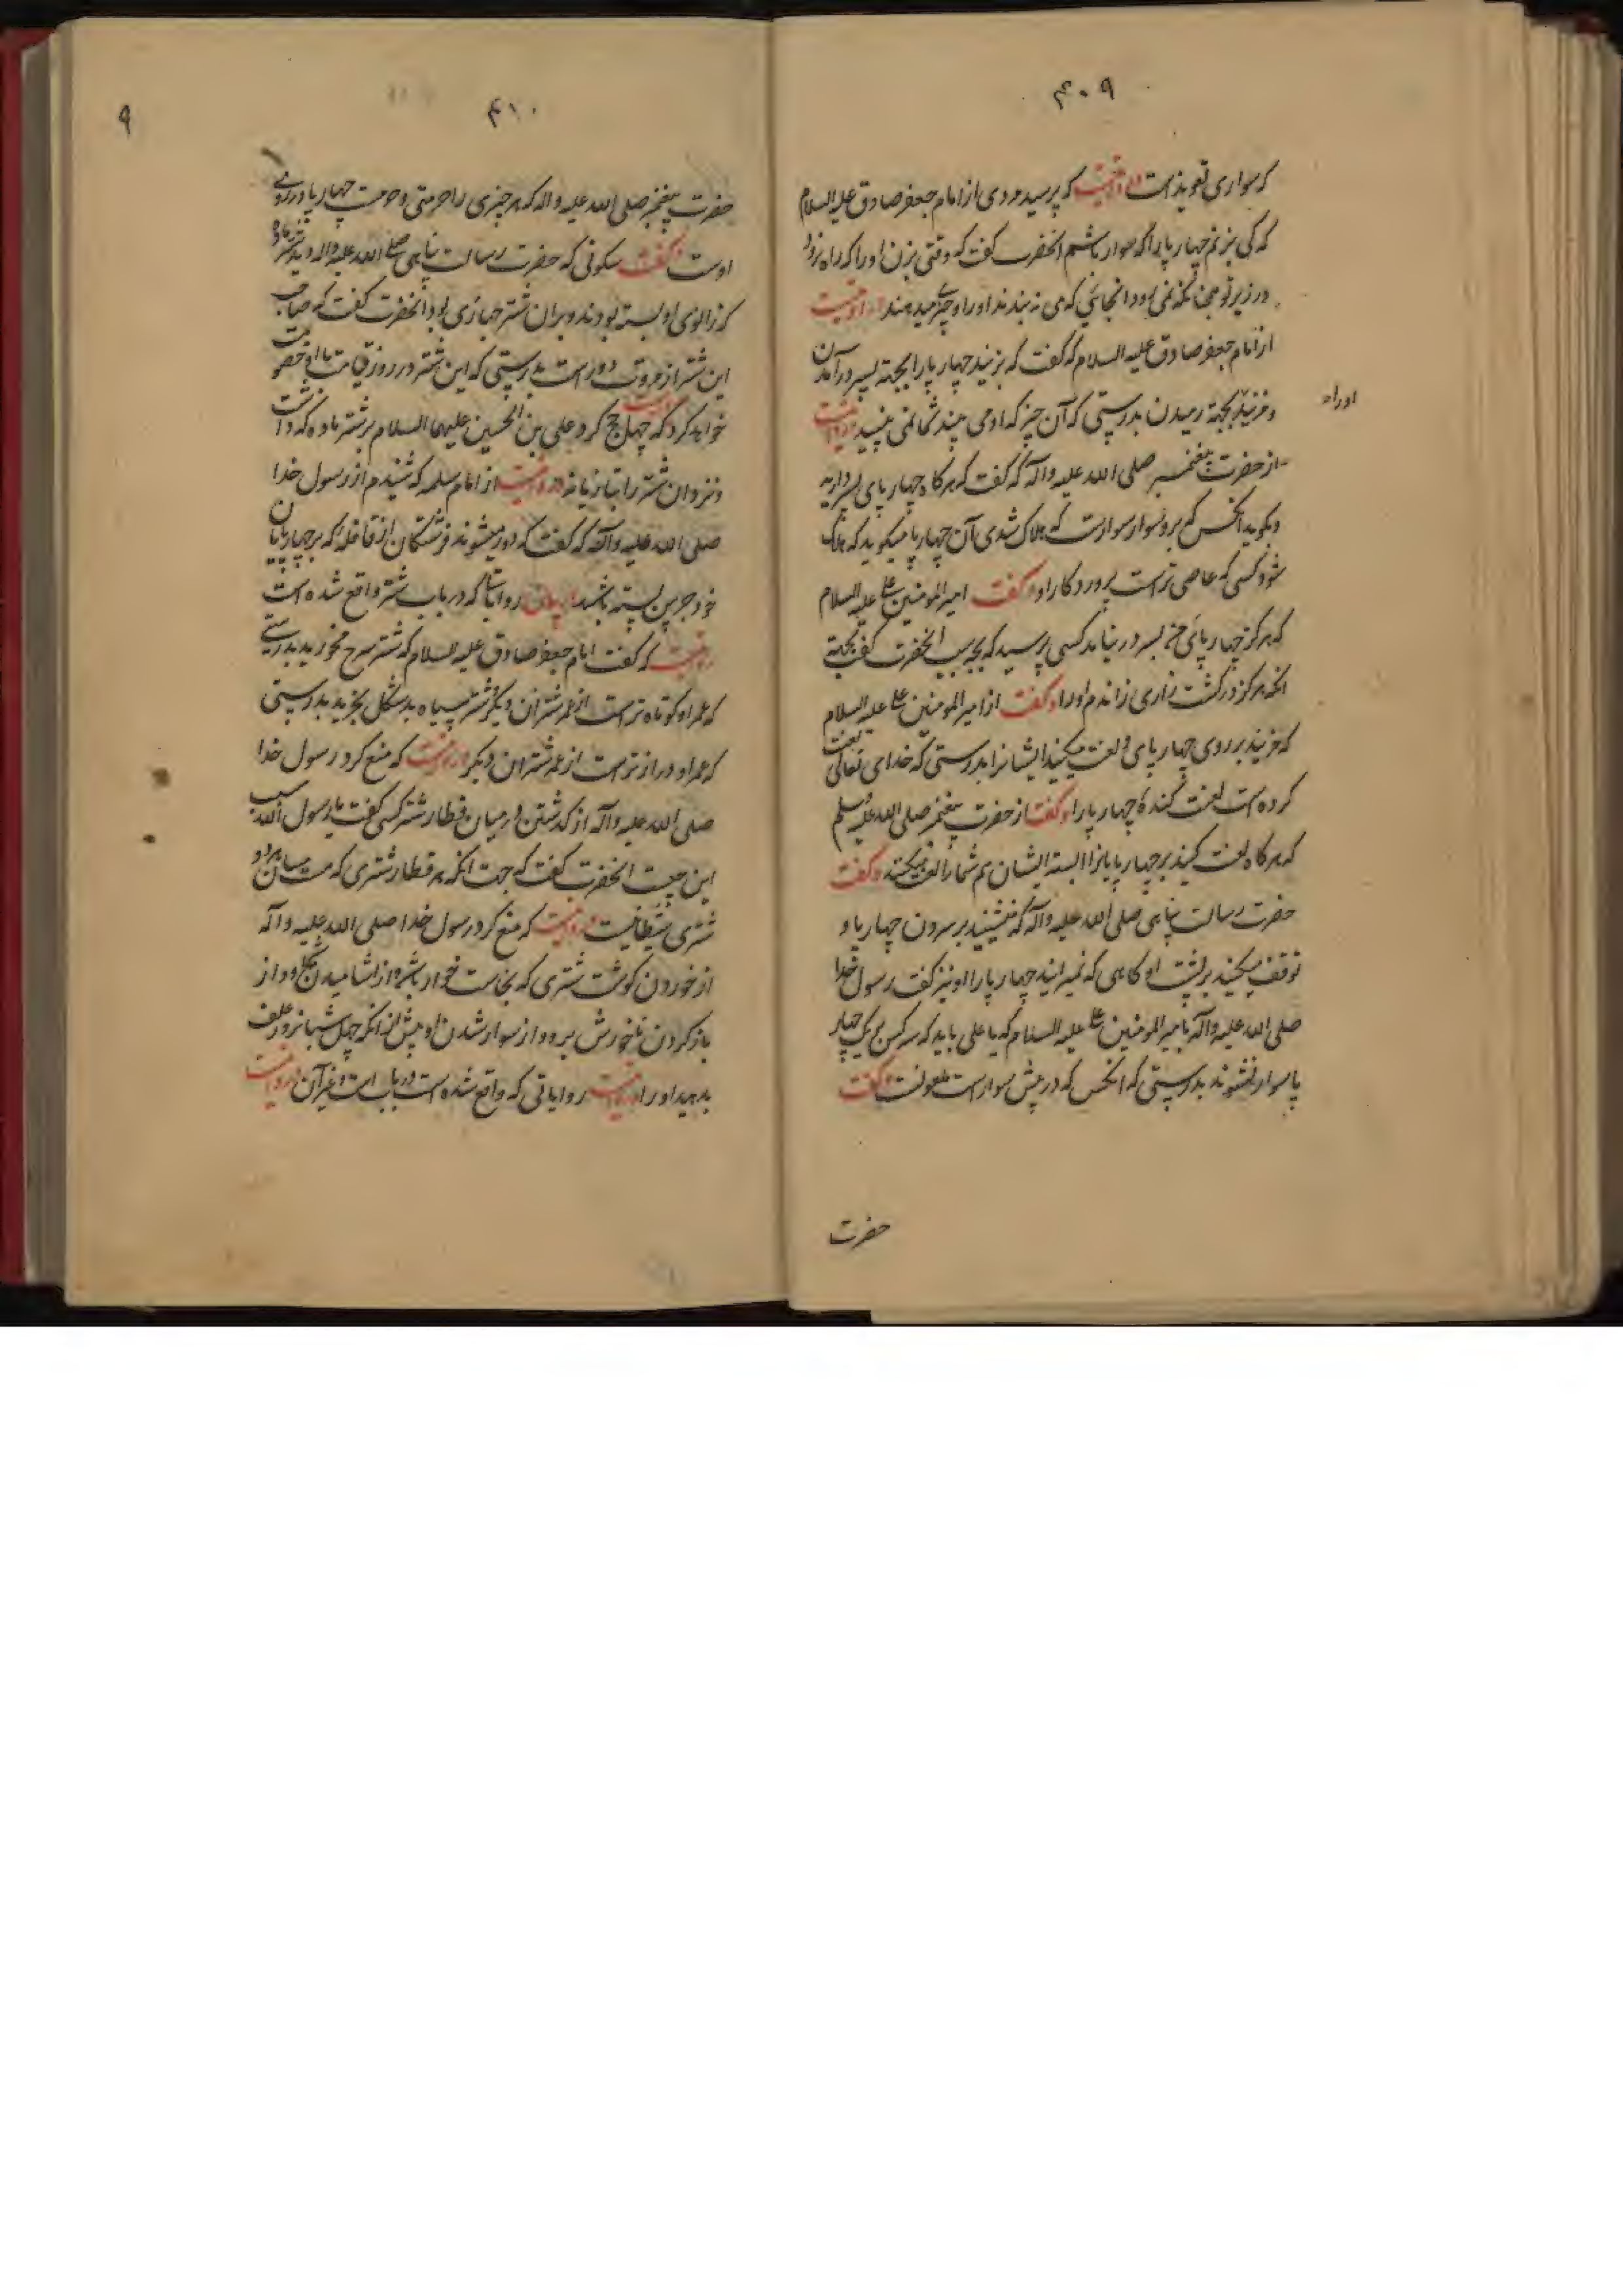 ۴۰۹
که سواری تعویذ است و روایتست که پرسید مردی از امام جعفر صادق علیه السلام
که کی بزنم چهارپا را که سوار باشم آنحضرت گفت که وقتی بزن او را که راه نرود
در زیر تو چنانکه نمی رود انجائی که می بندند او را و چیزی میدهند روایتست
از امام جعفر صادق علیه السلام که گفت که بزنید چهارپا را بجهته بسر درآمدن
و مزنید بجهته رمیدن بدرستی که آن چیز که او می بیند شما نمی بینید و روایتست
اوراه
از حضرت پیغمبر صلی الله علیه و آله که گفت که هرگاه چهارپای بسر دراید
و بگوید انکس که برو سوار است که هلاک شدی آن چهارپا میگوید که هلاک
شود کسی که عاصی تر است پروردکار او و گفت امیر المومنین علی علیه السلام
که هرکز چهارپای من بسر در نیامد کسی پرسید که بچه سبب انحضرت گفت بجهته
انکه هرکز در کشت زاری نراندم او را و گفت از امیر المومنین علی علیه السلام
که مزنید بر روی چهارپای و لعنت میکنید ایشانرا بدرستی که خدای تعالی لعنت
کرده است لعنت کنندهٔ چهارپا را و گفت از حضرت پیغمبر صلی الله علیه و سلم
که هرگاه لعنت کنید بر چهارپایانرا البته ایشان هم شما را لعنت میکنند و گفت
حضرت رسالت پناهی صلی الله علیه و آله که منشینید بر سرون چهارپا و
توقف میکنید بر پشت او کاهی که نمیرانید چهارپا را و نیز گفت رسول خدا
صلی الله علیه و آله بامیر المومنین علی علیه السلام که یا علی باید که سه کس بر یک چهار
پا سوار نشوند بدرستی که انکس که در پیش سوار است ملعونست و گفت
حضرت
۴۱۰
۹
حضرت پیغمبر صلی الله علیه و اله که هر چیزی را حرمتی و حرمت چهارپا در روی
اوست و گفت سکونی که حضرت رسالت پناهی صلی الله علیه و اله دید شتر ماده
که زانوی او بسته بودند و بر ان شتر جهازی بود انحضرت گفت که صاحب
این شتر از مروت دور است بدرستی که این شتر در روز قیامت با او خصومت
خواهد کرد که چهل حج کرد علی بن الحسین علیهما السلام بر شتر ماده که داشت
و نزد ان شتر را بتازیانه و روایتست از ام سلمه که شنیدم از رسول خدا
صلی الله علیه و آله که گفت که دور میشوند فرشتگان از قافله که بر چهارپایان
خود جرس بسته باشند روایاتی که در باب شتر واقع شده است
روایتست که گفت امام جعفر صادق علیه السلام که شتر سرخ مخرید بدرستی
که عمر او کوتاه تر است از عمر شتران دیگر و شتر سیاه بد شکل بخرید بدرستی
که عمر او دراز تر است از عمر شتران دیگر و روایتست که منع کرد رسول خدا
صلی الله علیه و آله از کذشتن در میان قطار شتر کسی گفت یا رسول الله سبب
این چیست انحضرت گفت که جهت انکه هر قطار شتری که هست میان هر دو
شتری شیطانیست و روایتست که منع کرد رسول خدا صلی الله علیه و آله
از خوردن گوشت شتری که نجاست خوار باشد و از اشامیدن شیر او و از
بار کردن برو و از سوار شدن او پیش از انکه چهل شبانروز علف
بدهید او را روایاتی که واقع شده است در باب است و غیر آن روایتست